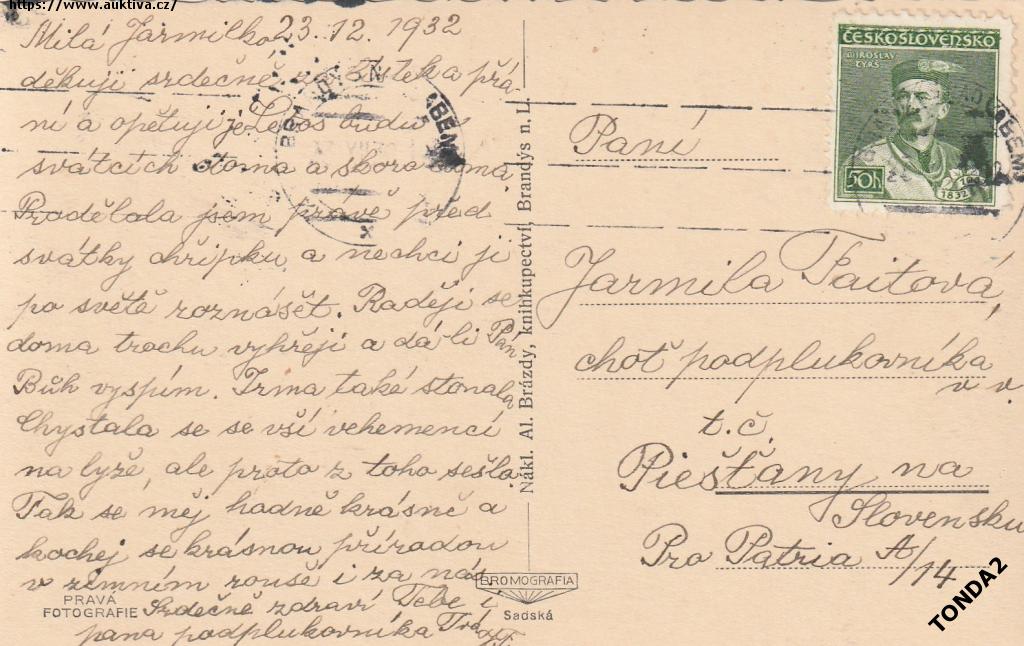 https://www.auktiva.cz/
Milá Jarmilko 23.12.1932
děkuji srdečně a přá-
ní a opětuji je Letos budu o
svátcích doma a skoro
Prodělala jsem právě před
svátky chřipku a nechci ji
po světě roznášet. Raději se
doma trochu vyhřeji a dá-li Pán
Bůh vyspím. Irma také stonala
Chystala se se vší vehemencí
na lyže, ale proto z toho sešlo
Tak se měj hodně krásně a
kochej se krásnou přírodou
v zimním rouše i za nás
Srdečně zdraví Tebe i
pana podplukovníka
PRAVÁ
FOTOGRAFIE
BROMOGRAFIA
Sadská
Nákl. Al. Brázdy, knihkupectví, Brandýs n. L.
ČESKOSLOVENSKO
MIROSLAV
TYRŠ
50h
1832
Paní
Jarmila Faitová,
choť podplukovníka
v v.
t.č.
Piešťany na
Slovensku
Pro Patria A/14
TONDA2